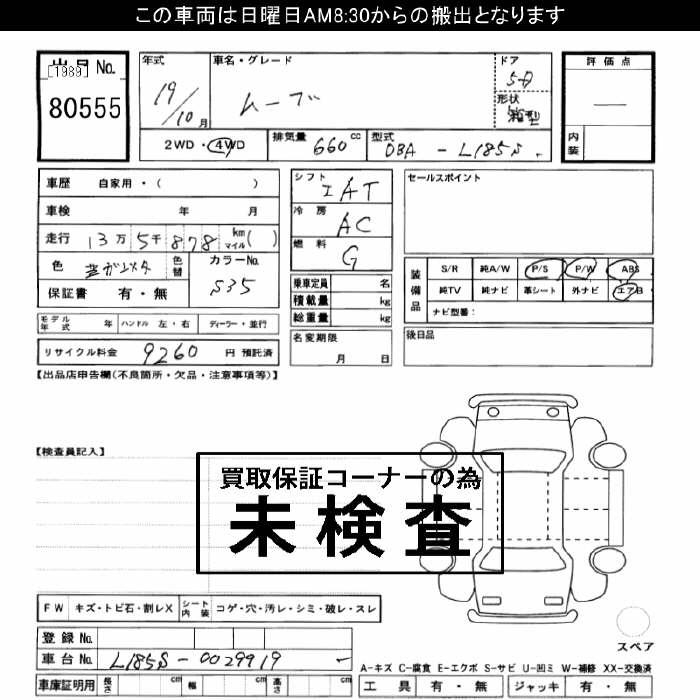 この車両は日曜日AM8:30からの搬出となります
出品No.
[1989]
80555
年式
19/10月
車名・グレード
ムーブ
ドア
5D
形状
箱型
評価点
内装
2WD・4WD
排気量 660 cc
型式 DBA - L185S
車歴 自家用・( )
車検 年 月
走行 13万5千878 km マイル( )
色
色替
カラーNo.
S35
保証書 有・無
シフト IAT
冷房 AC
燃料 G
乗車定員 名
積載量 kg
総重量 kg
名変期限
月 日
セールスポイント
装備品
S/R 純A/W P/S P/W ABS
純TV 純ナビ 革シート 外ナビ エアB
ナビ型番：
後日品
モデル年式 年 ハンドル 左・右 ディーラー・並行
リサイクル料金 9260 円 預託済
【出品店申告欄(不良箇所・欠品・注意事項等)】
【検査員記入】
買取保証コーナーの為
未検査
FW キズ・トビ石・割レX シート内装 コゲ・穴・汚レ・シミ・破レ・スレ
登録No.
車台No. L185S-0029919
車庫証明用 長さ cm 幅 cm 高さ cm
スペア
A-キズ C-腐食 E-エクボ S-サビ U-凹ミ W-補修 XX-交換済
工具 有・無 ジャッキ 有・無